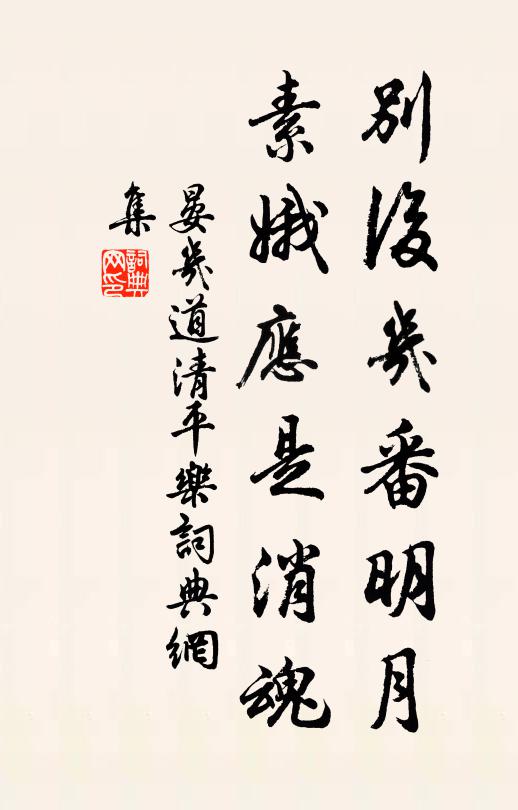 別後幾番明月
素娥應是消魂
晏幾道清平樂詞典網
集
詞典网印